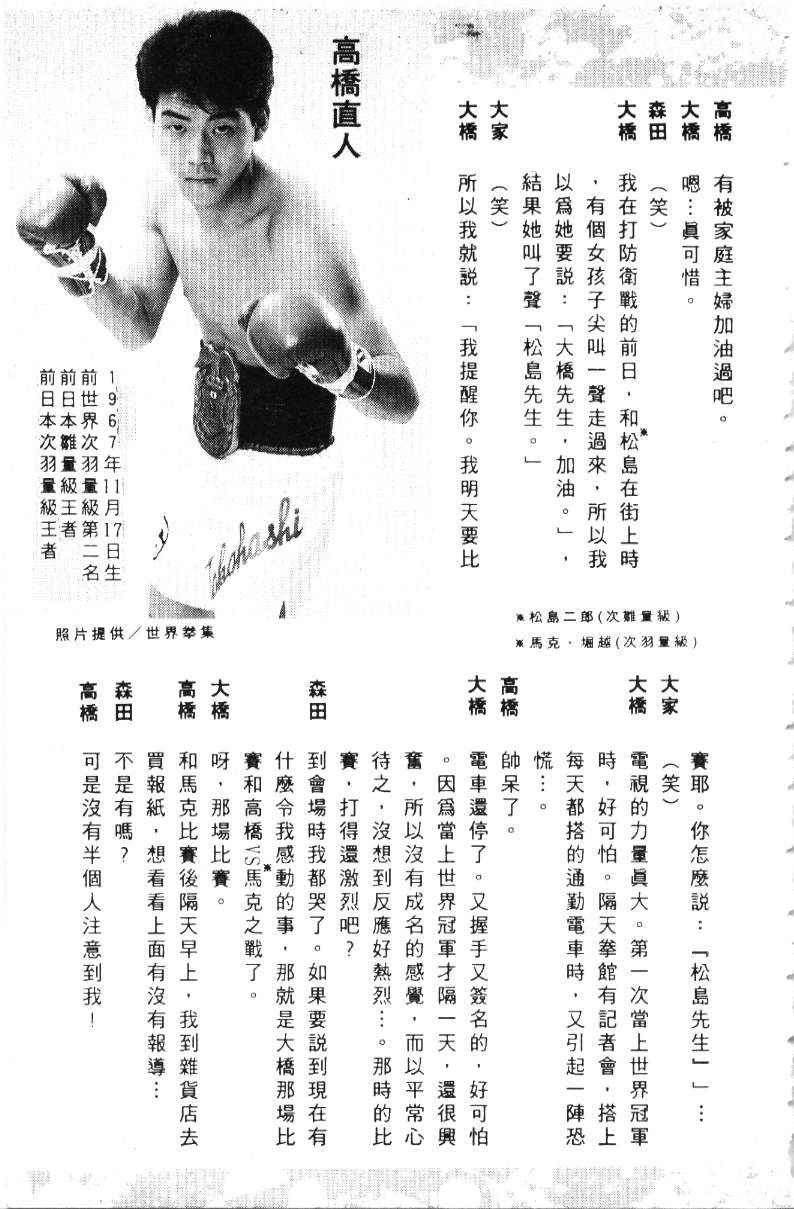 高橋　有被家庭主婦加油過吧。
大橋　嗯…眞可惜。
森田　（笑）
大橋　我在打防衛戰的前日，和松島※在街上時
，有個女孩子尖叫一聲走過來，所以我
以爲她要說：「大橋先生，加油。」，
結果她叫了聲「松島先生。」
大家　（笑）
大橋　所以我就說：「我提醒你。我明天要比
高橋直人
1967年11月17日生
前世界次羽量級第二名
前日本雛量級王者
前日本次羽量級王者
Takahashi
照片提供／世界拳集
※松島二郎(次雛量級)
※馬克．堀越(次羽量級)
賽耶。你怎麼說：『松島先生』」…
大家　（笑）
大橋　電視的力量眞大。第一次當上世界冠軍
時，好可怕。隔天拳館有記者會，搭上
每天都搭的通勤電車時，又引起一陣恐
慌…。
高橋　帥呆了。
大橋　電車還停了。又握手又簽名的，好可怕
。因爲當上世界冠軍才隔一天，還很興
奮，所以沒有成名的感覺，而以平常心
待之，沒想到反應好熱烈…。那時的比
賽，打得還激烈吧？
森田　到會場時我都哭了。如果要說到現在有
什麼令我感動的事，那就是大橋那場比
賽和高橋VS馬克※之戰了。
大橋　呀，那場比賽。
高橋　和馬克比賽後隔天早上，我到雜貨店去
買報紙，想看看上面有沒有報導…
森田　不是有嗎？
高橋　可是沒有半個人注意到我！